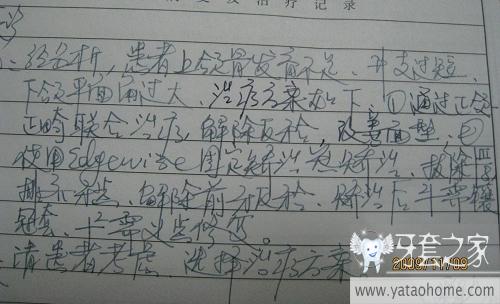 治疗记录
经分析,患者上颌骨发育不足、升支过短、
下颌平面角过大、治疗方案如下 ①通过正颌
正畸联合治疗,解除反𬌗,改善面型。②
使用Edgewise固定矫治器矫治、拔除四
解除前牙反𬌗、矫治后牙需镶
冠套、
请患者考虑 选择治疗方案
牙套之家
www.yataohome.com